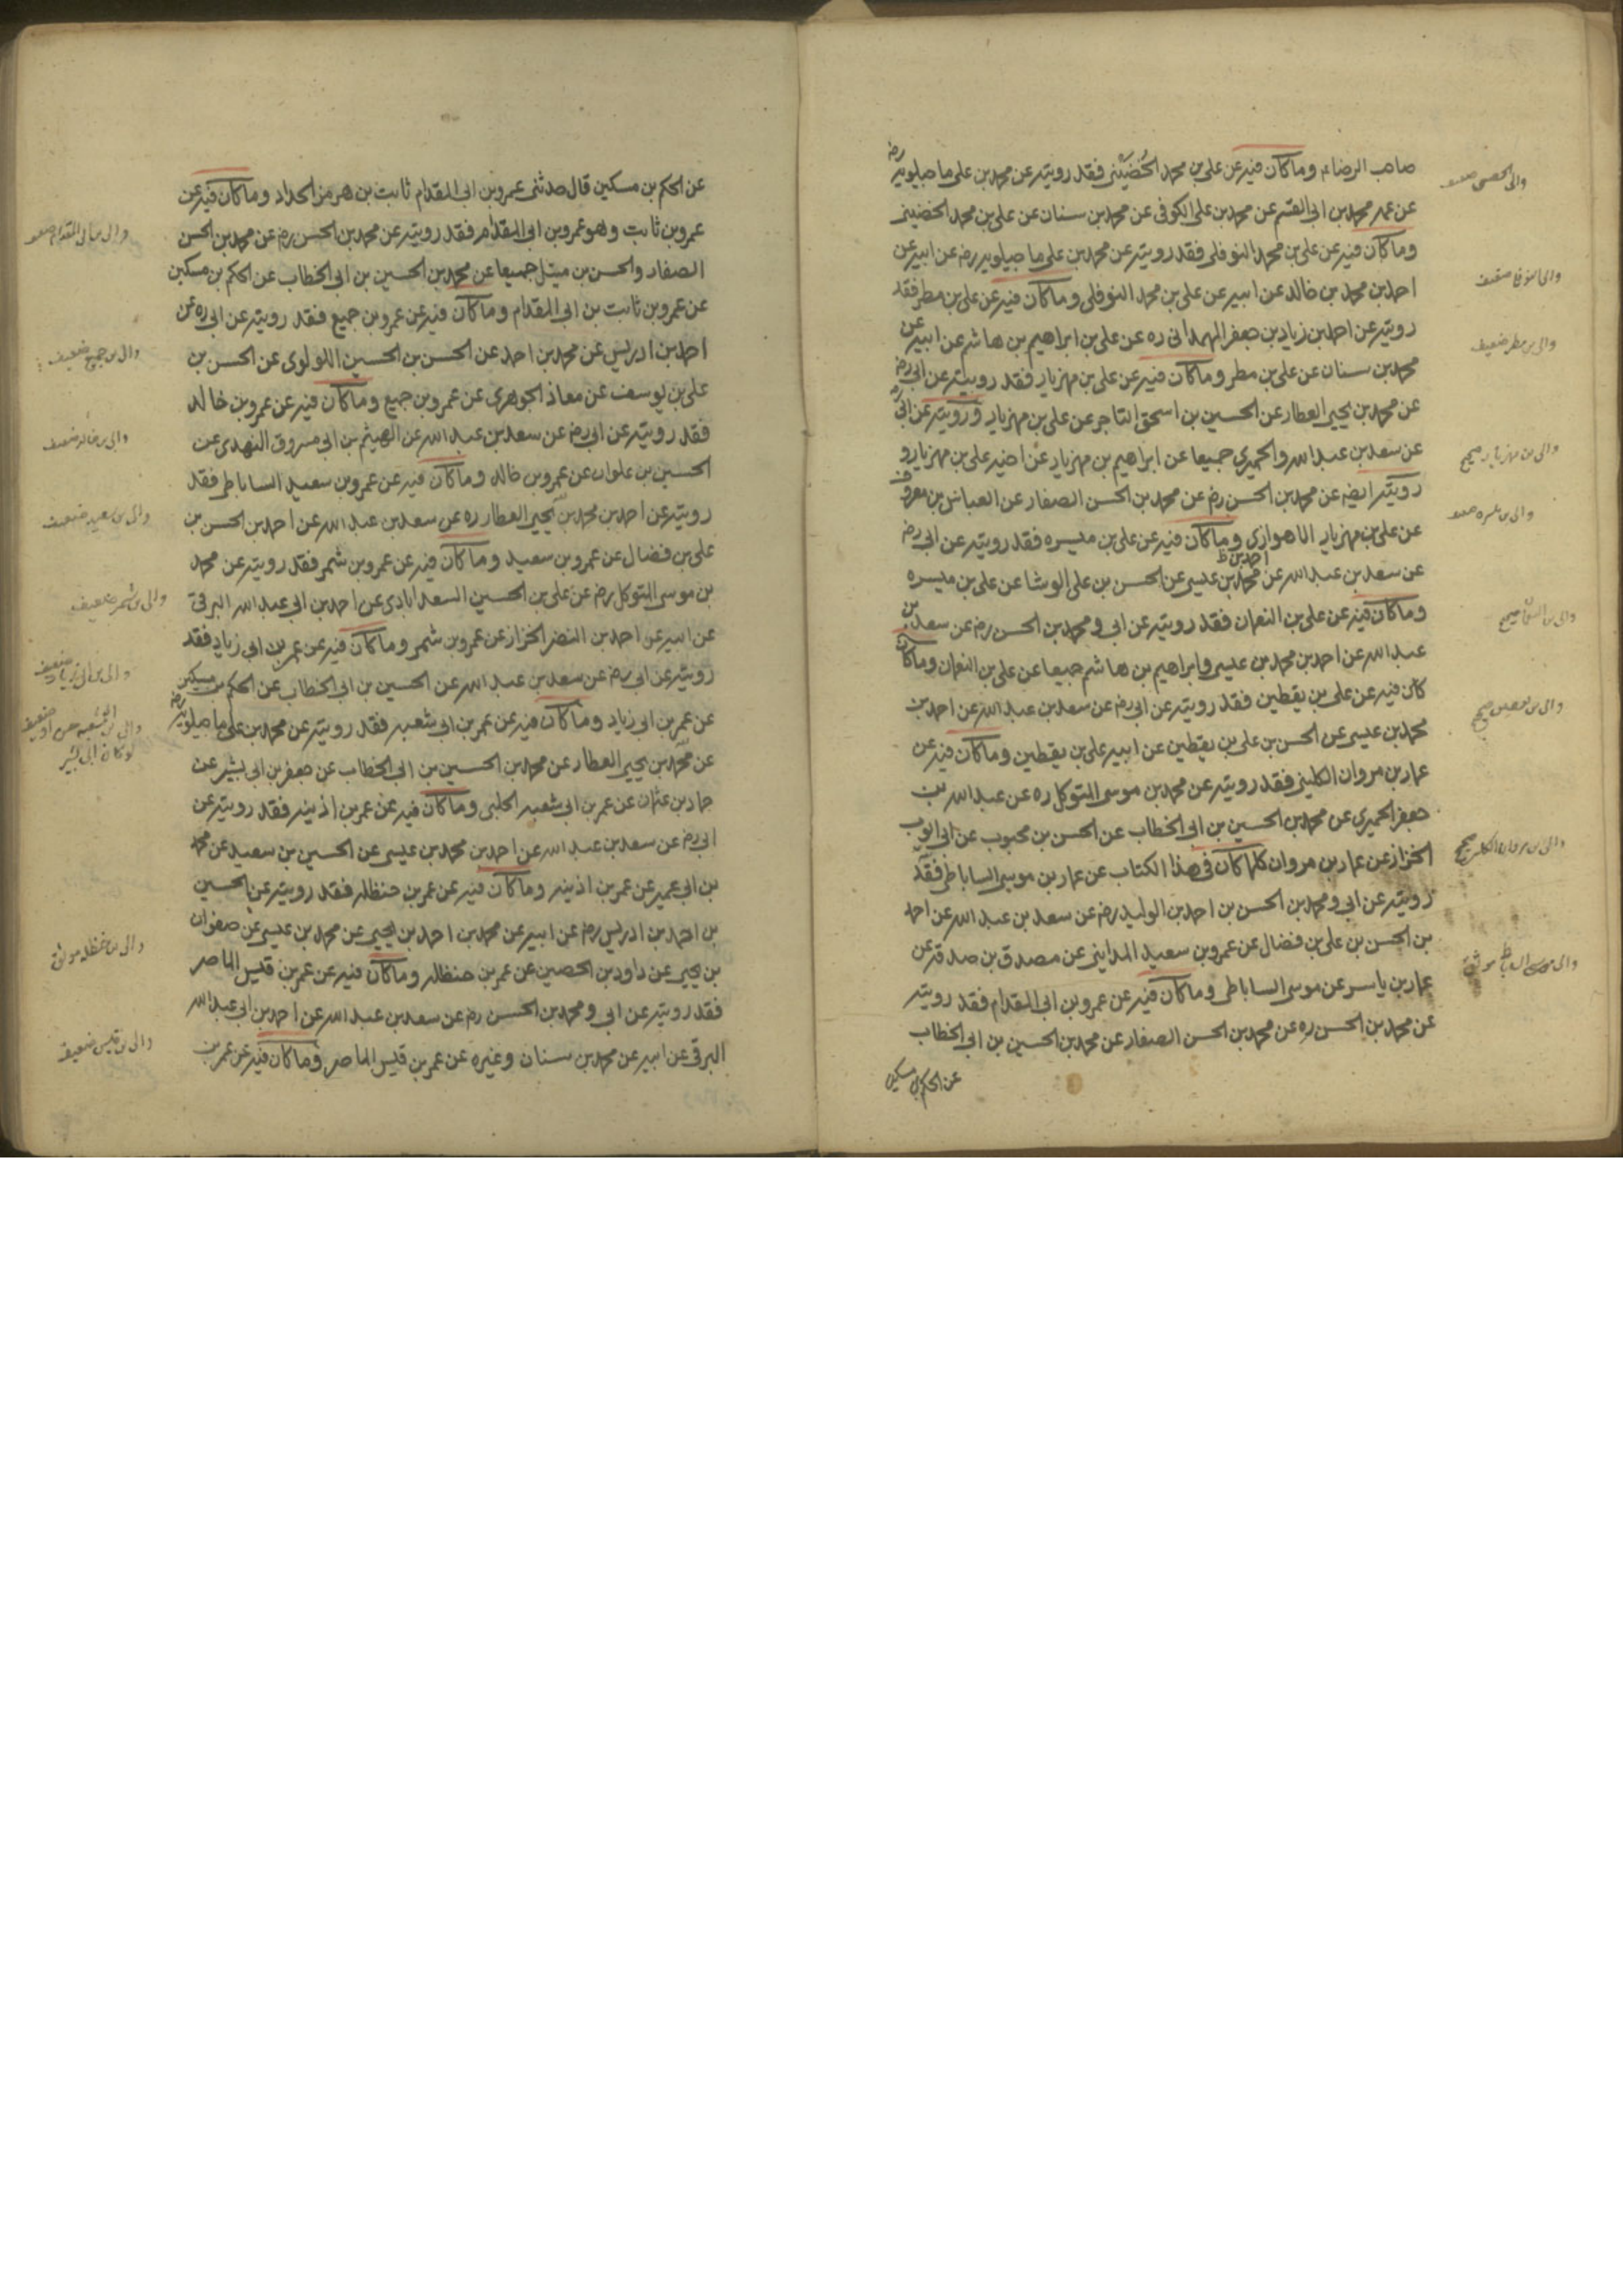 صاحب الرضاء وما كان فيه عن علي بن محمد الحُضَيْني فقد رويته عن محمد بن علي ماجيلويه رض
عن عمه محمد بن ابي القسم عن محمد بن علي الكوفي عن محمد بن سنان عن علي بن محمد الحضيني
وما كان فيه عن علي بن محمد النوفلي فقد رويته عن محمد بن علي ماجيلويه رض عن ابيه عن
احمد بن محمد بن خالد عن ابيه عن علي بن محمد النوفلي وما كان فيه عن علي بن مطر فقد
رويته عن احمد بن زياد بن جعفر الهمداني ره عن علي بن ابراهيم بن هاشم عن ابيه عن
محمد بن سنان عن علي بن مطر وما كان فيه عن علي بن مهزيار فقد رويته عن ابي رض
عن محمد بن يحيى العطار عن الحسين بن اسحق التاجر عن علي بن مهزيار ورويته عن ابي ره
عن سعد بن عبد الله والحميري جميعا عن ابراهيم بن مهزيار عن اخيه علي بن مهزيار و
رويته ايضه عن محمد بن الحسن رض عن محمد بن الحسن الصفار عن العباس بن معروف
عن علي بن مهزيار الاهوازي وما كان فيه عن علي بن ميسره فقد رويته عن ابي رض
احمد بن ظ
عن سعد بن عبد الله عن محمد بن عيسى عن الحسن بن علي الوشا عن علي بن ميسره
وما كان فيه عن علي بن النعمان فقد رويته عن ابي ومحمد بن الحسن رض عن سعد بن
عبد الله عن احمد بن محمد بن عيسى وابراهيم بن هاشم جميعا عن علي بن النعمان وما كان
كان فيه عن علي بن يقطين فقد رويته عن ابي رض عن سعد بن عبد الله عن احمد بن
محمد بن عيسى عن الحسن بن علي بن يقطين عن ابيه علي بن يقطين وما كان فيه عن
عمار بن مروان الكليني فقد رويته عن محمد بن موسى المتوكل ره عن عبد الله بن
جعفر الحميري عن محمد بن الحسين بن ابي الخطاب عن الحسن بن محبوب عن ابي ايوب
الخزاز عن عمار بن مروان كلما كان في هذا الكتاب عن عمار بن موسى الساباطي فقد
رويته عن ابي ومحمد بن الحسن بن احمد بن الوليد رض عن سعد بن عبد الله عن احمد
بن الحسن بن علي بن فضال عن عمرو بن سعيد المدايني عن مصدق بن صدقه عن
عمار بن ياسر عن موسى الساباطي وما كان فيه عن عمرو بن ابي المقدام فقد رويته
عن محمد بن الحسن ره عن محمد بن الحسن الصفار عن محمد بن الحسين بن ابي الخطاب
عن الحكم بن مسكين
والى مطر ضعيف
والى بن مهزيار صحيح
والى بن النعمان صحيح
والى بن يقطين صحيح
والى بن مروان الكليني صحيح
والى موسى الساباطي موثق
عن الحكم بن مسكين قال حدثني عمرو بن ابي المقدام ثابت بن هرمز الحداد وما كان فيه عن
عمرو بن ثابت وهو عمرو بن ابي المقدام فقد رويته عن محمد بن الحسن رض عن محمد بن الحسن
الصفار والحسن بن ميتل جميعا عن محمد بن الحسين بن ابي الخطاب عن الحكم بن مسكين
عن عمرو بن ثابت بن ابي المقدام وما كان فيه عن عمرو بن جميع فقد رويته عن ابي ره عن
احمد بن ادريس عن محمد بن احمد عن الحسن بن الحسين اللولوي عن الحسن بن
علي بن يوسف عن معاذ الجوهري عن عمرو بن جميع وما كان فيه عن عمرو بن خالد
فقد رويته عن ابي رض عن سعد بن عبد الله عن الهيثم بن ابي مسروق النهدي عن
الحسين بن علوان عن عمرو بن خالد وما كان فيه عن عمرو بن سعيد الساباطي فقد
رويته عن احمد بن محمد بن يحيى العطار ره عن سعد بن عبد الله عن احمد بن الحسن بن
علي بن فضال عن عمرو بن سعيد وما كان فيه عن عمرو بن شمر فقد رويته عن محمد
بن موسى المتوكل رض عن علي بن الحسين السعد ابادي عن احمد بن ابي عبد الله البرقي
عن ابيه عن احمد بن النضر الخزاز عن عمرو بن شمر وما كان فيه عن عمر بن ابي زياد فقد
رويته عن ابي رض عن سعد بن عبد الله عن الحسين بن ابي الخطاب عن الحكم بن مسكين
عن عمر بن ابي زياد وما كان فيه عن عمر بن ابي شعبه فقد رويته عن محمد بن علي ماجيلويه رض
عن محمد بن يحيى العطار عن محمد بن الحسين بن ابي الخطاب عن جعفر بن ابي بشير عن
حماد بن عثمان عن عمر بن ابي شعبه الحلبي وما كان فيه عن عمر بن اذينه فقد رويته عن
ابي رض عن سعد بن عبد الله عن احمد بن محمد بن عيسى عن الحسين بن سعيد عن محمد
بن ابي عمير عن عمر بن اذينه وما كان فيه عن عمر بن حنظله فقد رويته عن الحسين
بن احمد بن ادريس رض عن ابيه عن محمد بن احمد بن يحيى عن محمد بن عيسى عن صفوان
بن يحيى عن داود بن الحصين عن عمر بن حنظله وما كان فيه عن عمر بن قيس الماصر
فقد رويته عن ابي ومحمد بن الحسن رض عن سعد بن عبد الله عن احمد بن ابي عبد الله
البرقي عن ابيه عن محمد بن سنان وغيره عن عمر بن قيس الماصر وما كان فيه عن عمر بن
والى بن جميع ضعيف
والى بن خالد ضعيف
والى بن سعيد ضعيف
والى بن شمر ضعيف
والى بن ابي زياد ضعيف
والى بن حنظله موثق
والى بن قيس ضعيف